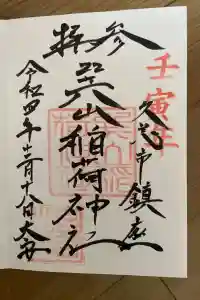 壬寅年
参拝
久慈市鎮座
巽山稲荷神社
令和四年十二月十八日大安